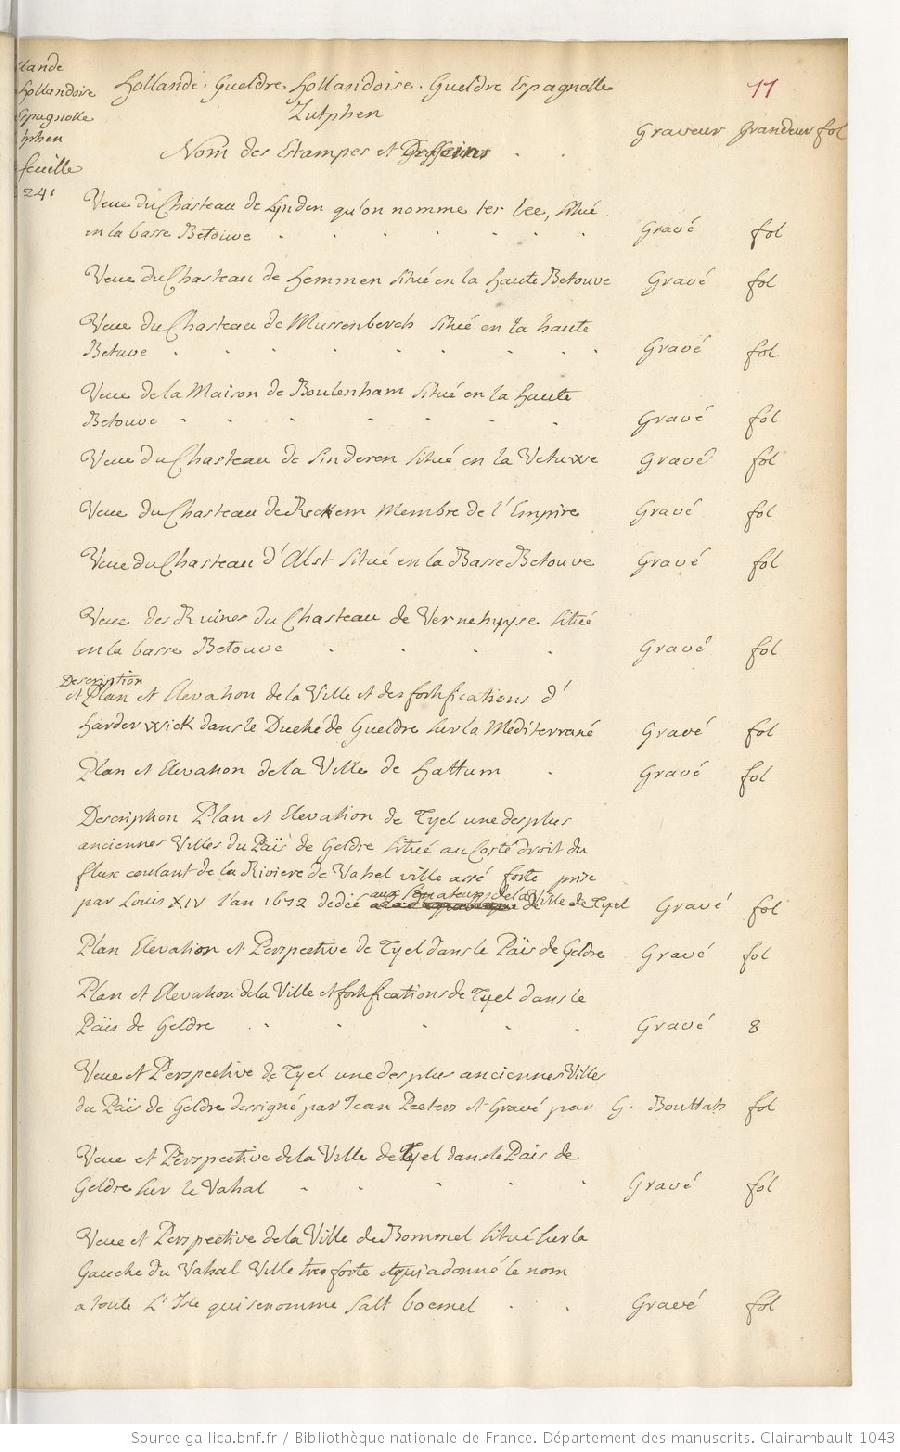 lande
hollandoise
Espagnolle
phen
feuille
24.
Hollande. Gueldre. Hollandoise. Gueldre Espagnolle
Zutphen
11
Nom des Estampes et Desseins . . Graveur Grandeur fol
Veue du Chasteau de Lynden qu'on nomme ter lee, situé
en la basse Betouwe . . . . . . . Gravé fol
Veue du Chasteau de Hemmen situé en la haute Betouve Gravé fol
Veue du Chasteau de Mussenberch situé en la haute
Betuve . . . . . . . . Gravé fol
Veue de la Maison de Boulenham situé en la haute
Betouve . . . . . . . Gravé fol
Veue du Chasteau de Sinderen situé en la Veluwe Gravé fol
Veue du Chasteau de Reckem Membre de l'Empire Gravé fol
Veue du Chasteau d'Alst situé en la Basse Betouve Gravé fol
Veue des Ruines du Chasteau de Vernehuyse situé
en la basse Betouve . . . . . Gravé fol
Description
et Plan et Elevation de la Ville et des fortifications d'
Harderwick dans le Duché de Gueldre sur la Mediterrané Gravé fol
Plan et Elevation de la Ville de Hattum . Gravé fol
Description Plan et Elevation de Tyel une des plus
anciennes Villes du Païs de Geldre située au Costé droit du
flux coulant de la Riviere de Vahel ville assé forte prise
aux Senateurs de la
par Louis XIV l'an 1672 dedié de Ville de Tyel Gravé fol
Plan Elevation et Perspective de Tyel dans le Païs de Geldre Gravé fol
Plan et Elevation de la Ville et fortifications de Tyel dans le
Païs de Geldre . . . . . . Gravé 8
Veue et Perspective de Tyel une des plus anciennes Villes
du Païs de Geldre dessigné par Jean Peeters et Gravé par G. Bouttats fol
Veue et Perspective de la Ville de Tyel dans le Païs de
Geldre sur le Vahal . . . . . Gravé fol
Veue et Perspective de la Ville de Bommel situé sur la
Gauche du Vahal Ville tres forte et qui a donné le nom
a toute L'Isle qui se nomme Salt boemel . . Gravé fol
Source gallica.bnf.fr / Bibliothèque nationale de France. Département des manuscrits. Clairambault 1043